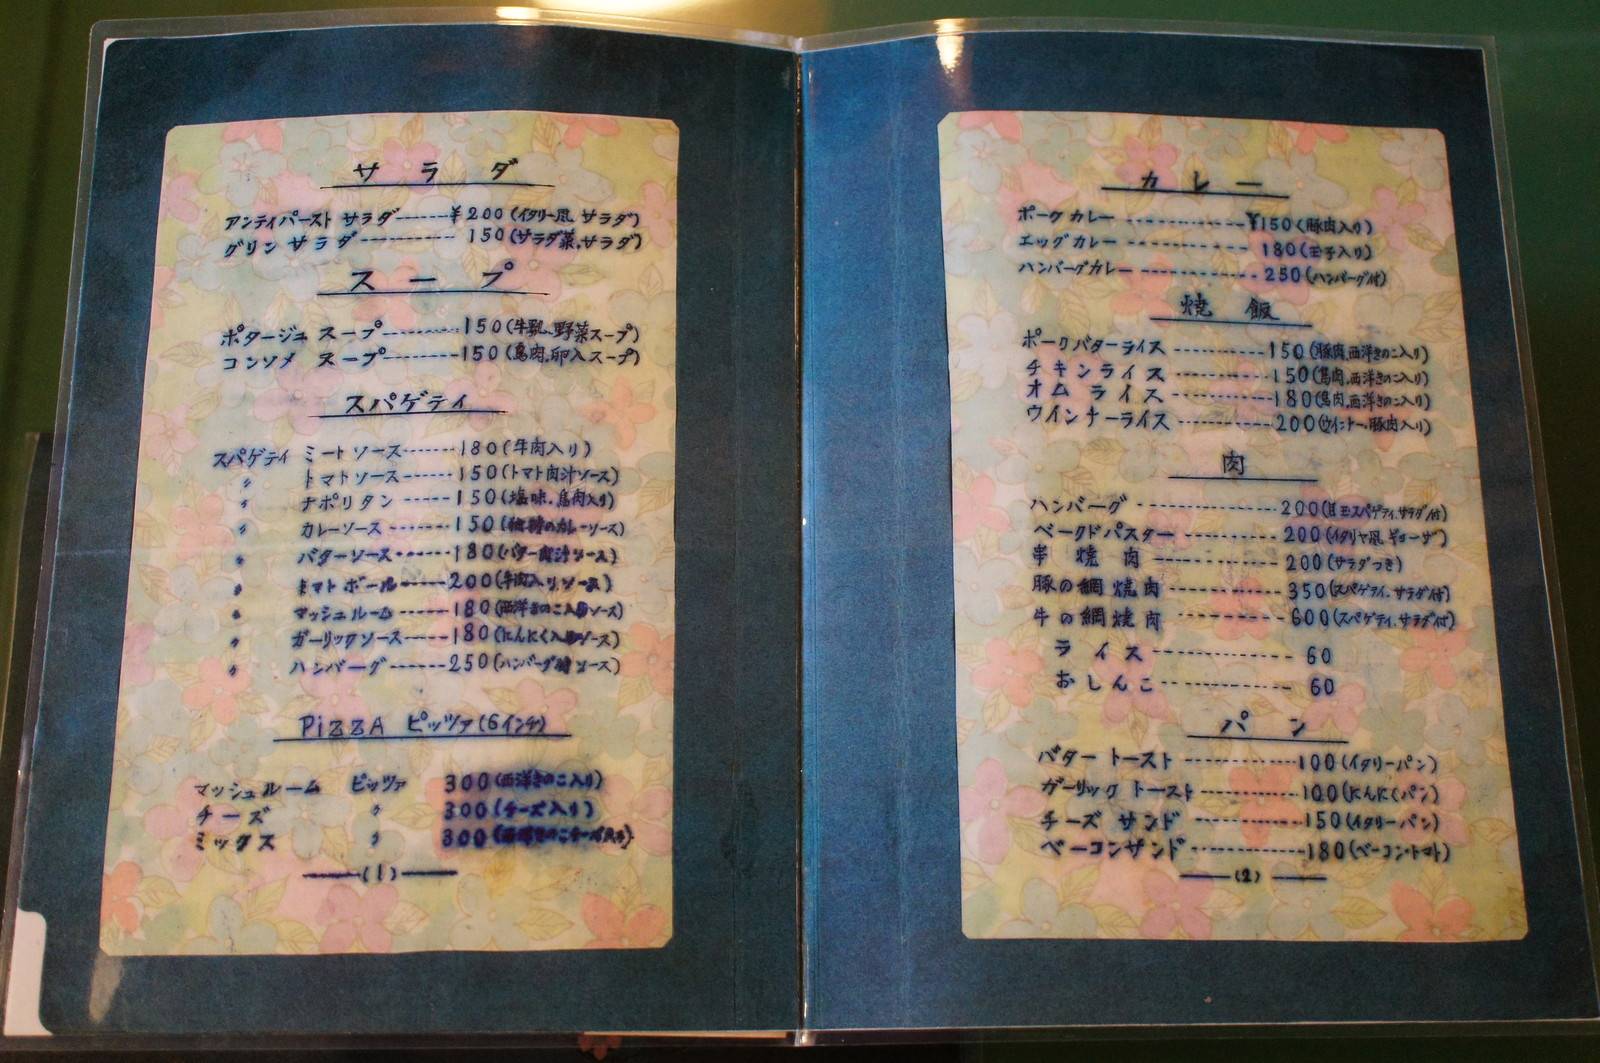 サラダ
アンティパースト サラダ------¥200(イタリー風 サラダ)
グリン サラダ---------- 150(サラダ菜.サラダ)
スープ
ポタージュ スープ-------150(牛乳、野菜スープ)
コンソメ スープ-------150(鳥肉.卵入スープ)
スパゲテイ
スパゲテイ ミートソース------180(牛肉入り)
〃 トマトソース------150(トマト肉汁ソース)
〃 ナポリタン------150(塩味.鳥肉入り)
〃 カレーソース------150(カレーソース)
〃 バターソース------180(バター肉汁ソース)
〃 トマト ボール-----200(牛肉入りソース)
〃 マッシュルーム-----180(西洋きのこ入りソース)
〃 ガーリックソース-----180(にんにく入りソース)
〃 ハンバーグ------250(ハンバーグ ソース)
PiZZA ピッツァ(6インチ)
マッシュルーム ピッツァ 300(西洋きのこ入り)
チーズ 〃 300(チーズ入り)
ミックス 〃 300
(1)
カレー
ポークカレー ----------¥150(豚肉入り)
エッグカレー ---------- 180(玉子入り)
ハンバーグカレー ---------- 250(ハンバーグ付)
焼飯
ポークバターライス ----------150(豚肉.西洋きのこ入り)
チキンライス ----------150(鳥肉.西洋きのこ入り)
オムライス ----------180(鳥肉.西洋きのこ入り)
ウインナーライス ---------200(ウインナー.豚肉入り)
肉
ハンバーグ -------------200(目玉スパゲテイ.サラダ付)
ベークドパスター ---------200(イタリヤ風ギョーザ)
串焼肉 ------------200(サラダつき)
豚の網焼肉 ----------350(スパゲテイ.サラダ付)
牛の網焼肉 ----------600(スパゲテイ.サラダ付)
ライス ------------ 60
おしんこ ------------ 60
パン
バタートースト ----------100(イタリーパン)
ガーリックトースト --------100(にんにくパン)
チーズ サンド ----------150(イタリーパン)
ベーコンサンド ----------180(ベーコン・トマト)
(2)